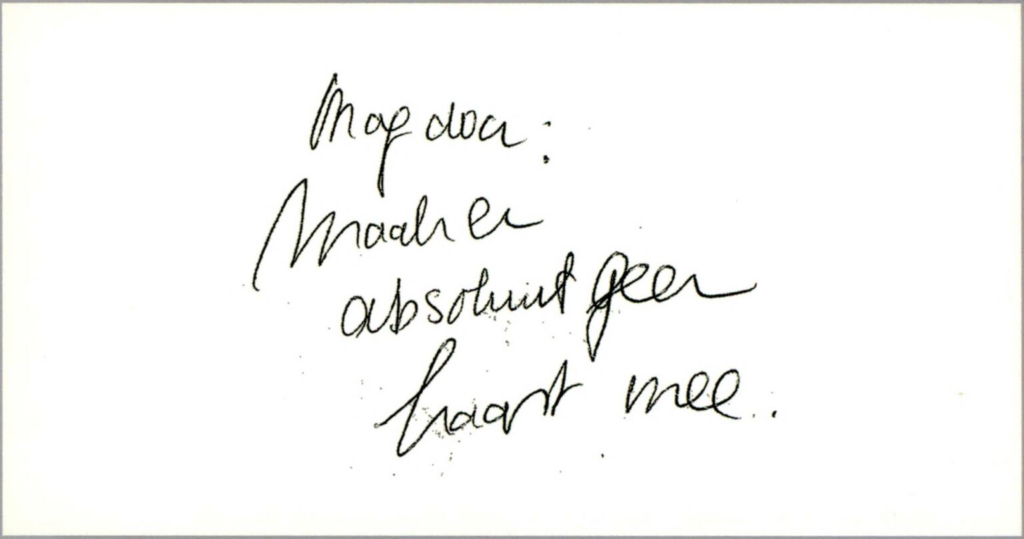 Mag door:
Maak er
absoluut geen
haast mee.